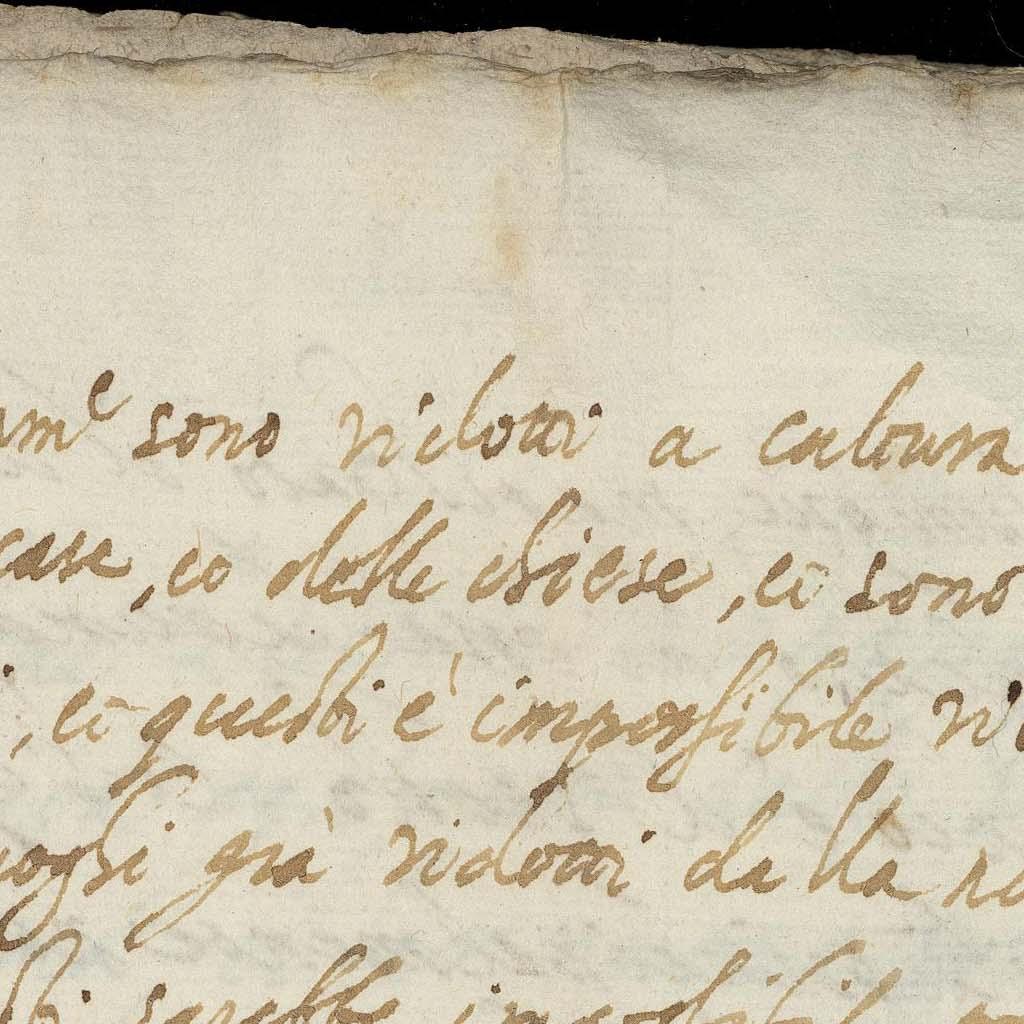 sono ridotti a coltura
case, et delle chiese, et sono
, et questi è impossibile
già ridotti dalla
sarebbe impossibile